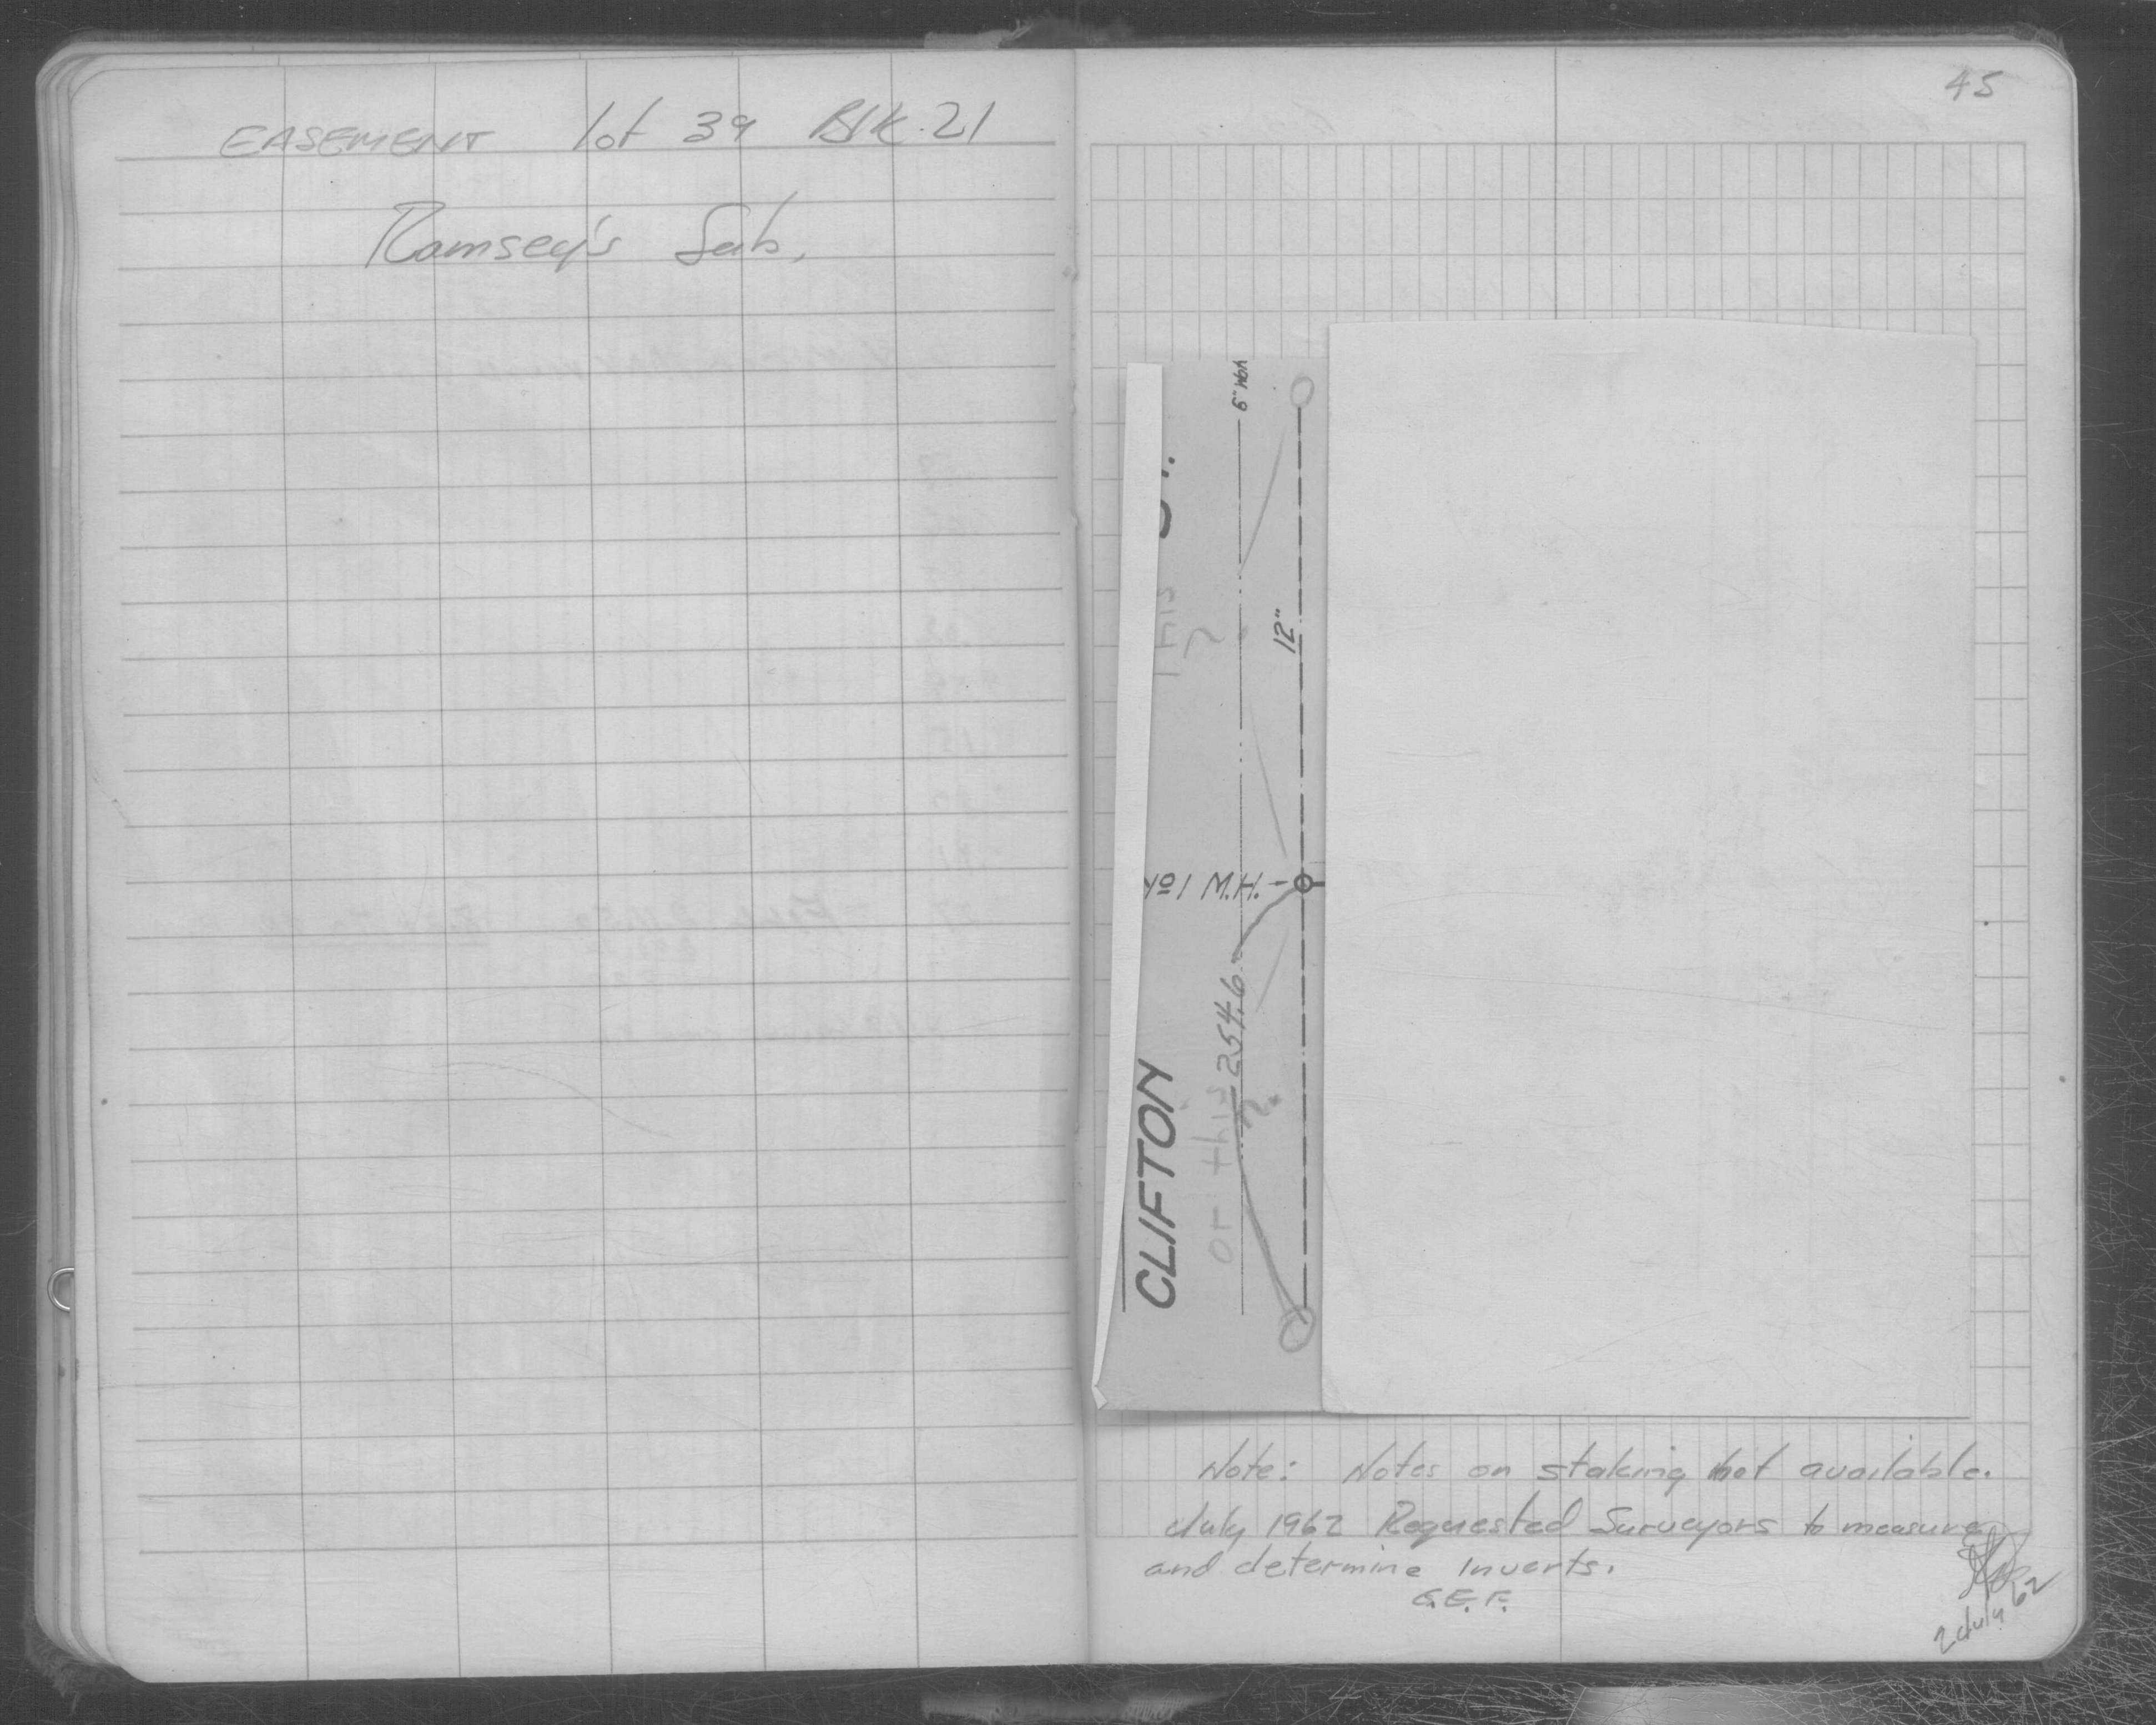 EASEMENT lot 39 Blk. 21
Ramsey's Sub.
45
6" Wat
12"
this
?
Nº1 M.H.
254.6
or this
?
CLIFTON
Note: Notes on staking not available.
July 1962 Requested Surveyors to measure
and determine Inverts.
G.E.F.
2 July 62